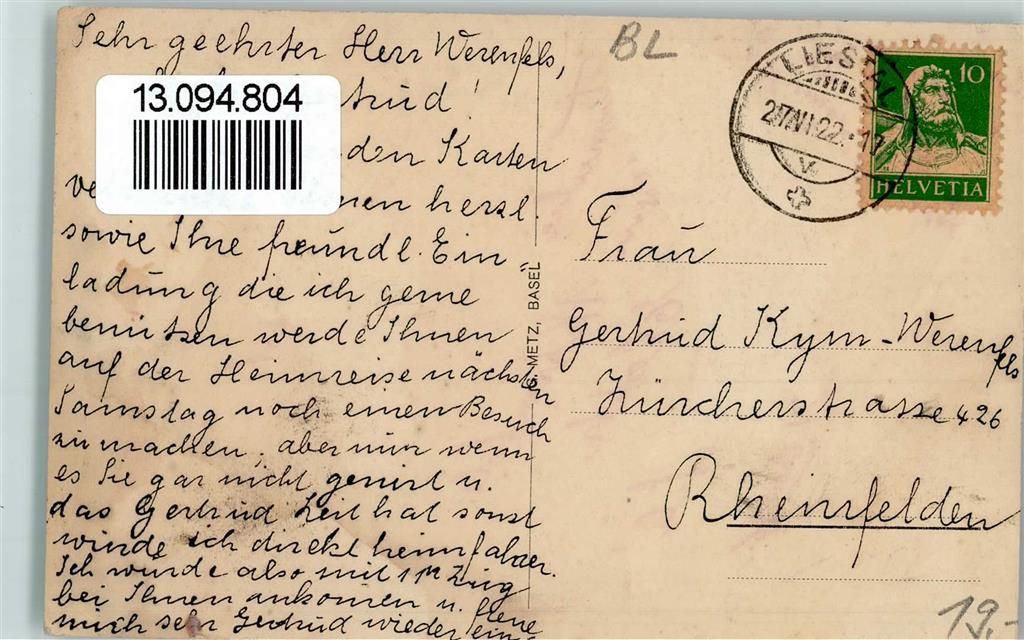 Sehr geehrter Herr Werenfels,
trud!
den Karten
herzl.
sowie Ihre freundl. Ein-
ladung die ich gerne
benützen werde Ihnen
auf der Heimreise nächsten
Samstag noch einen Besuch
zu machen, aber nur wenn
es Sie gar nicht geniert u.
das Gertrud Zeit hat sonst
würde ich direkt heimfahren.
Ich würde also mit 11h Zug
bei Ihnen ankommen u. freue
mich sehr Gertrud wieder ein-
13.094.804
METZ, BASEL
BL
LIESTAL
22.
V
10
HELVETIA
Frau
Gertrud Kym-Werenfels
Zürcherstrasse 426
Rheinfelden
19.-